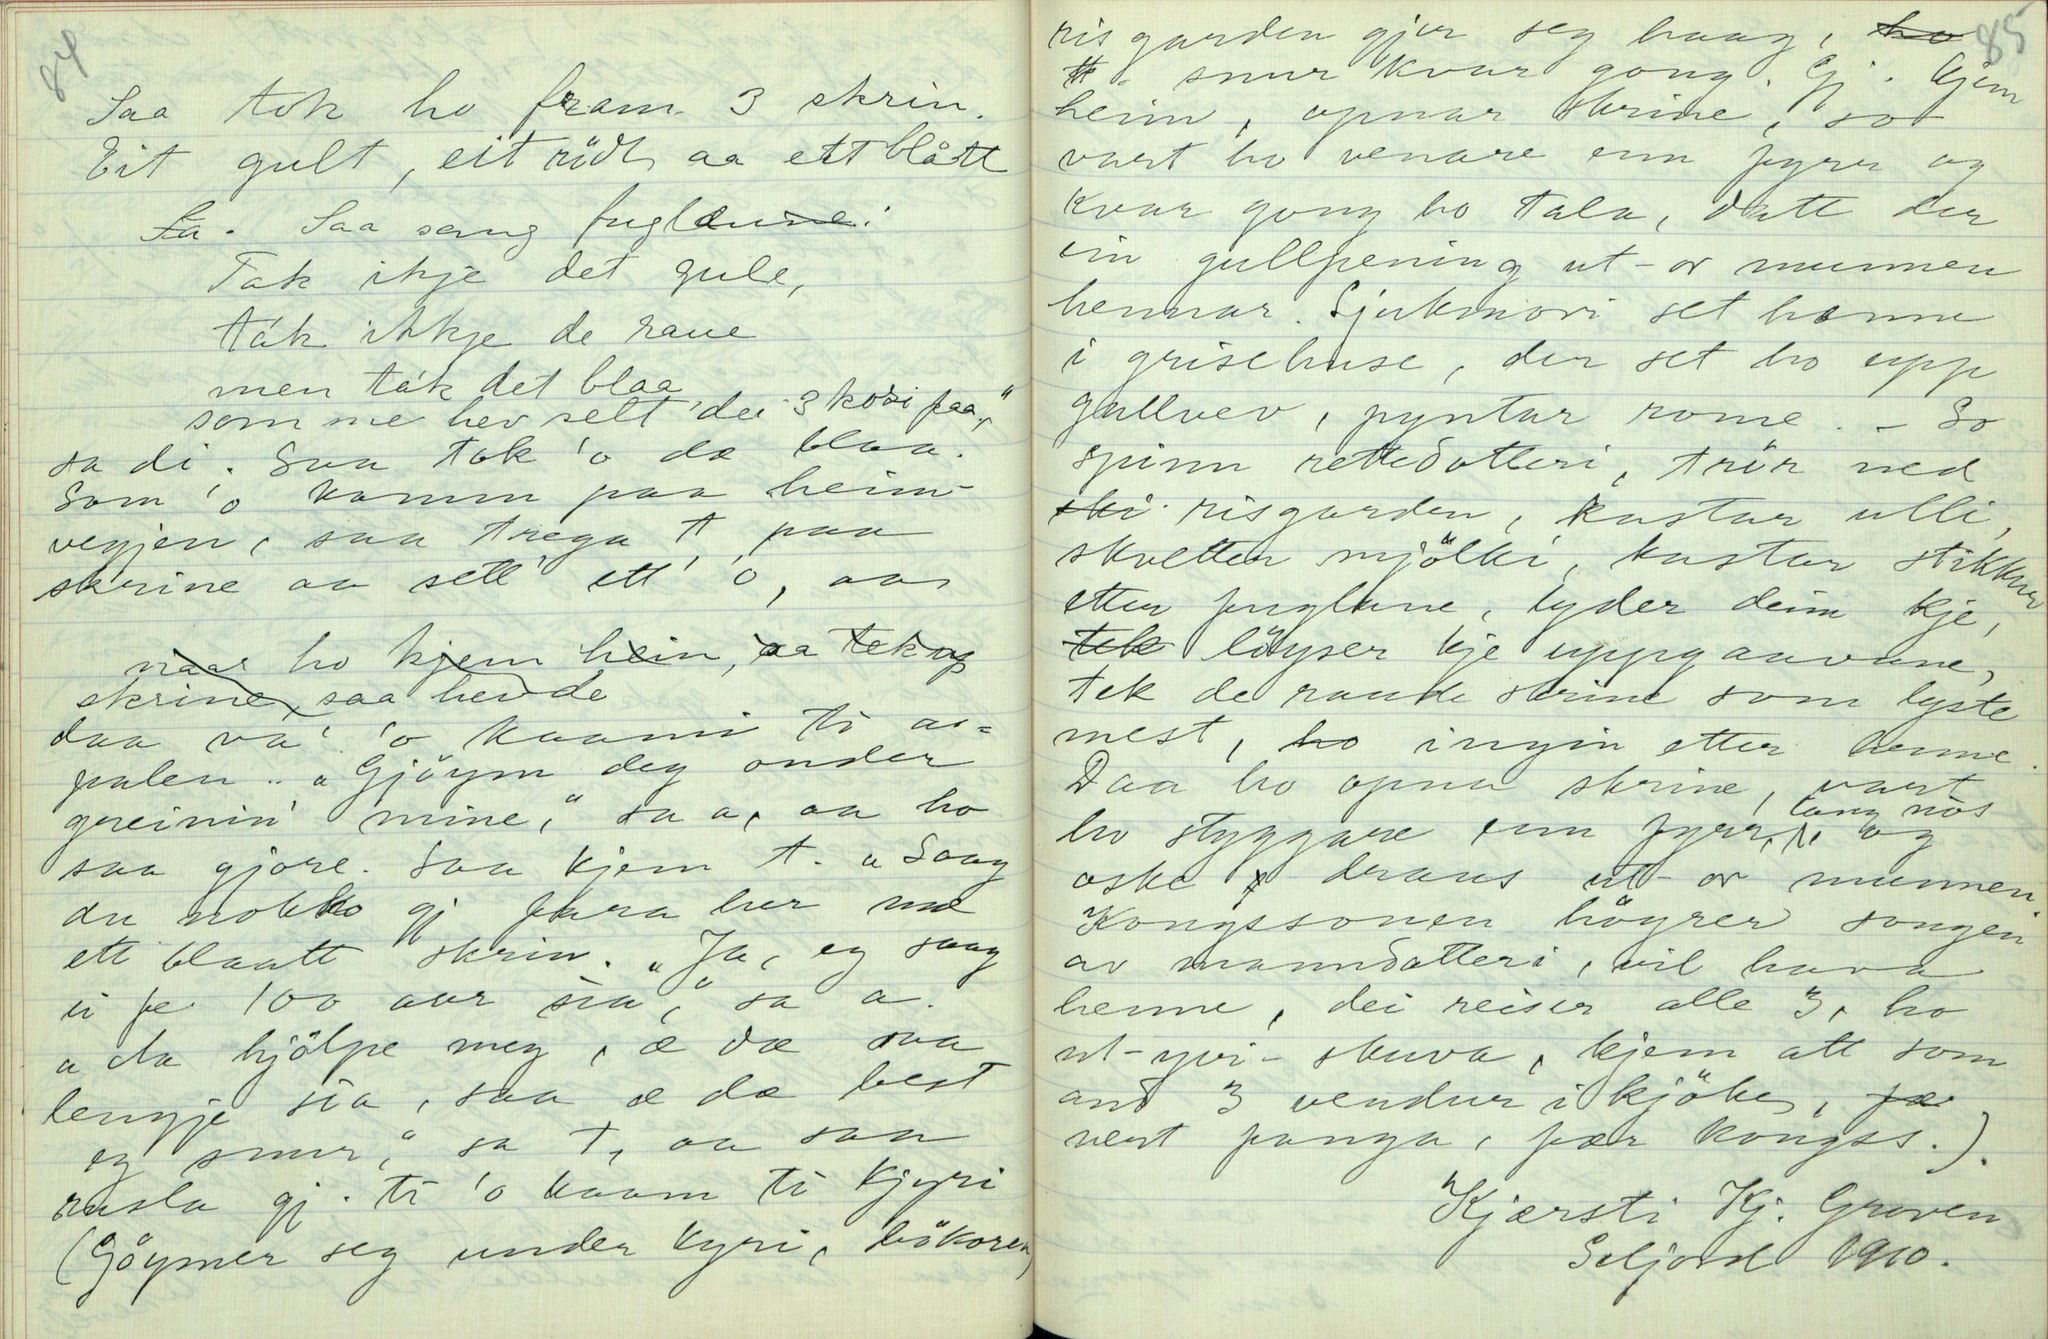 84
Saa tok ho fram 3 skrin.
Eit gult, eit rödt aa ett blått
Sa. Saa sang fuglaune:
Tak ikje det gule,
tak ikkje de raue
men tak det blaa
som me hev selt dei 3 kori paa,"
sa di. Saa tok 'o dæ blaa.
Som 'o kamm paa heim-
vegjen, saa trega t paa
skrine aa sett' ett' 'o, aa
naar ho kjem hein, aa tek op
skrine, saa hevde
daa va' 'o kaami ti a-
palen. „Gjöym deg onder
greinin' mine," sa a, aa ho
saa gjore. Saa kjem t. „Saag
du nokko gj fara her me
ett blaatt skrin. „Ja, eg saag
ei fe 100 aar sia," sa a.
„da hjölpe meg, æ dæ saa
lengje sia, saa æ dæ best
eg snur," sa t, aa saa
rusla gj. ti 'o kaam ti kjyri
(Göymer seg under kyri, bökoren,
85
risgarden gjer seg haag, ho
tt. snur kvar gong. Gj. kjem
heim, opnar skrine, so
vart ho venare enn fyrr og
kvar gong ho tala, datt der
ein gullpening ut-or munnen
hennar. Sjukmori set hænne
i grisehuse, der set ho upp
gullvev, pyntar rome. - So
spinn rettedotteri, trör ned
ski risgarden, kastar ulli,
skvetter mjölki, kastar stikkur
etter fuglane, lyder deim kje,
tek löyser kje uppgaavune,
tek de raude skrine som lyste
mest, ho ingin etter henne.
Daa ho opna skrine, vart
ho styggare enn fyrr, lang nos og
oske draus ut-or munnen.
Kongssonen höyrer songen
av manndotteri, vil hava
henne, dei reiser alle 3, ho
ut-yvi-skuva, kjem att som
and 3 vendur i kjöke, fær
vert fanga, fær kongss.).
Kjærsti Kj. Groven
Seljord 1910.